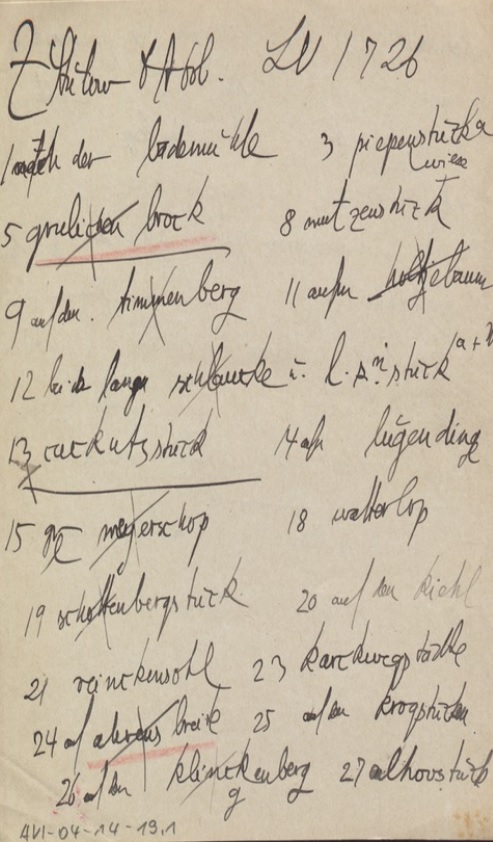 LV 1726
1 nach der lademühle 3 piepenstücke
wiese
5 grulichen brock 8 mutzenstück
9 auf dem timmenberg 11 aufm
12 beide lange u. l. stück a + b
13 cuckutzstück 14 lügending
15 gr meyerschop 18 wallerlop
19 schottenbergstück 20 auf den kiehl
21 reinckensohl 23 karckwegstücke
24 auf ahrens breite 25 auf den krogstücken
26 auf dem klinckenberg 27 alhovstück
g
AVI-04-14-19.1